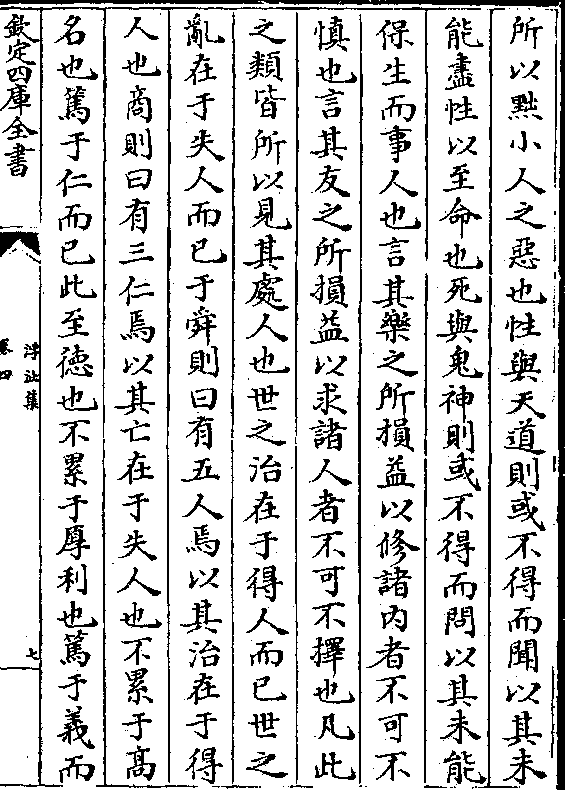 所以㸃小人之惡也性與天道則或不得而聞以其未
能盡性以至命也死與鬼神則或不得而問以其未能
保生而事人也言其樂之所損益以修諸内者不可不
慎也言其友之所損益以求諸人者不可不擇也凡此
之類皆所以見其處人也世之治在于得人而已世之
亂在于失人而已于舜則曰有五人焉以其治在于得
人也商則曰有三仁焉以其亡在于失人也不累于髙
名也篤于仁而已此至徳也不累于厚利也篤于義而
欽定四庫全書
浮沚集
卷四
七